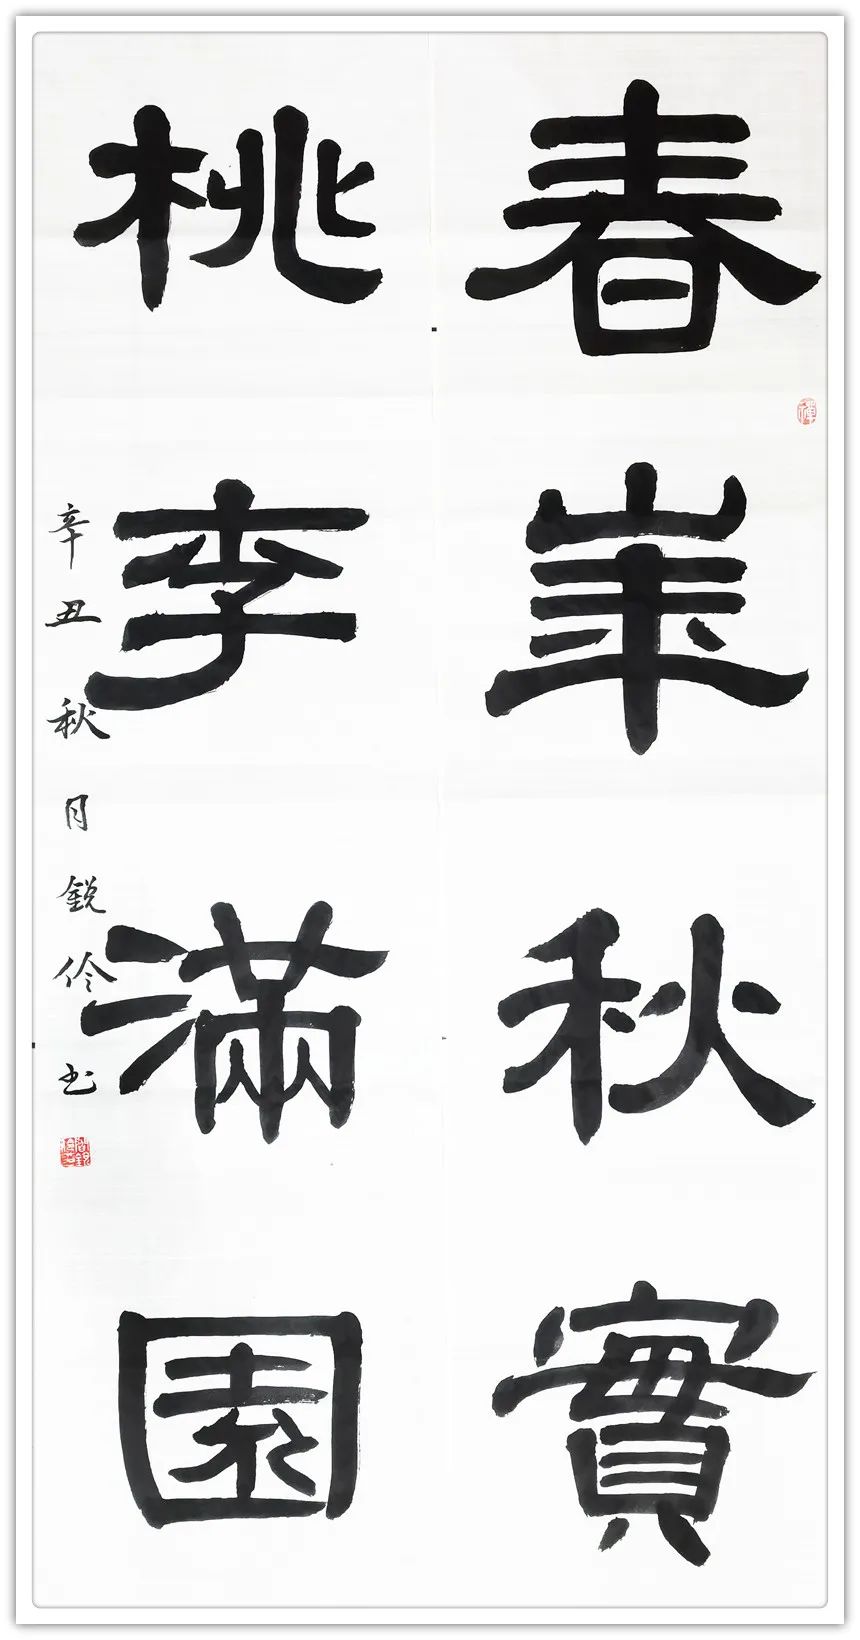 春華秋實
桃李滿園
辛丑秋月銳伶书